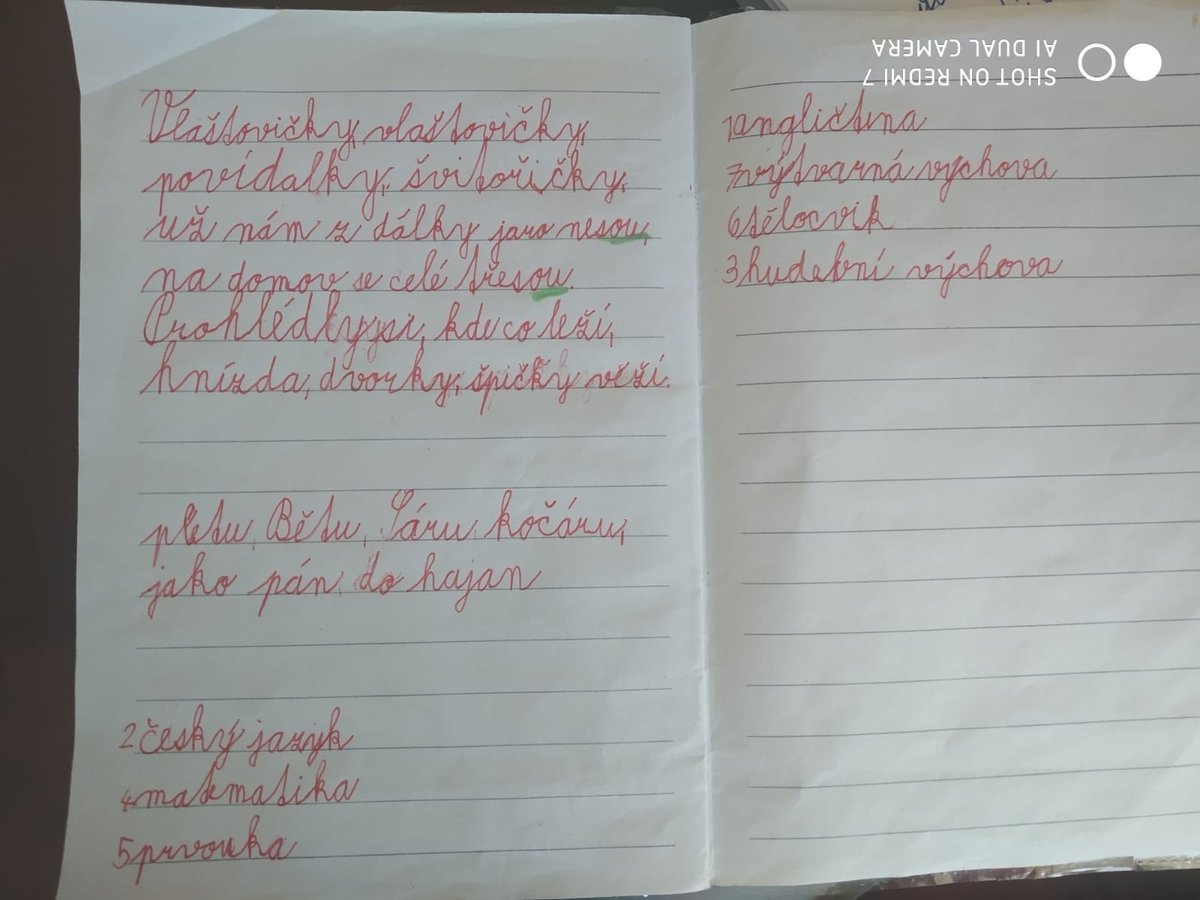 Vlaštovičky, vlaštovičky,
povídalky, švitořičky,
už nám z dálky jaro nesou,
na domov se celé třesou.
Prohlédky, kdeco leží,
hnízda, dvorky, špičky věží.
pletu, Bětu, Sáru kočáru,
jako pán do hajan
2český jazyk
4matematika
5prvouka
1angličtina
7výtvarná výchova
6tělocvik
3hudební výchova
SHOT ON REDMI 7
AI DUAL CAMERA